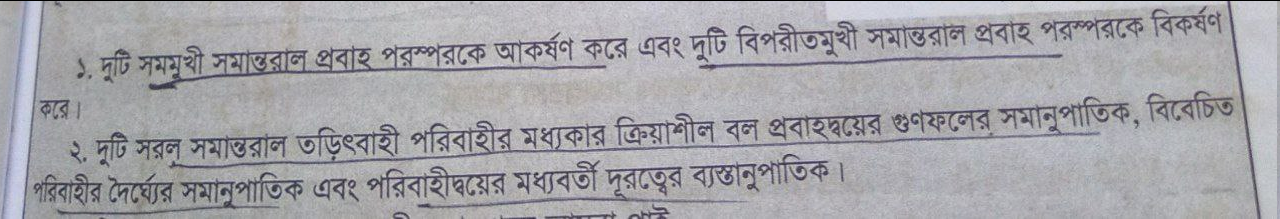 ১. দুটি সমমুখী সমান্তরাল প্রবাহ পরস্পরকে আকর্ষণ করে এবং দুটি বিপরীতমুখী সমান্তরাল প্রবাহ পরস্পরকে বিকর্ষণ
করে।
২. দুটি সরল সমান্তরাল তড়িৎবাহী পরিবাহীর মধ্যকার ক্রিয়াশীল বল প্রবাহদ্বয়ের গুণফলের সমানুপাতিক, বিবেচিত
পরিবাহীর দৈর্ঘ্যের সমানুপাতিক এবং পরিবাহীদ্বয়ের মধ্যবর্তী দূরত্বের ব্যস্তানুপাতিক।